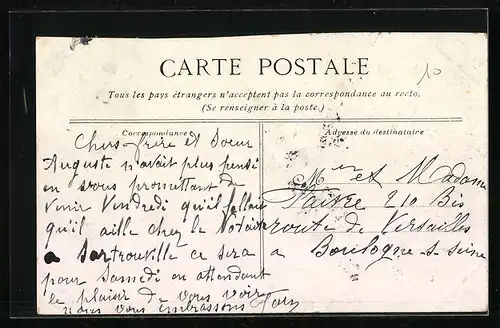 CARTE POSTALE
10
Tous les pays étrangers n'acceptent pas la correspondance au recto.
(Se renseigner à la poste.)
Correspondance
Chers frère et Soeur
Auguste n'avait plus pensé
en vous promettant de
venir Vendredi qu'il fallait
qu'il aille chez le Notaire
a Sartrouville ce sera
pour Samedi en attendant
le plaisir de vous voir
nous vous embrassons
Adresse du destinataire
Mr et Madame
210 Bis
route de Versailles
a Boulogne-s-Seine